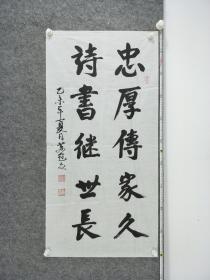 忠厚傳家久
詩書继世長
乙未年夏月